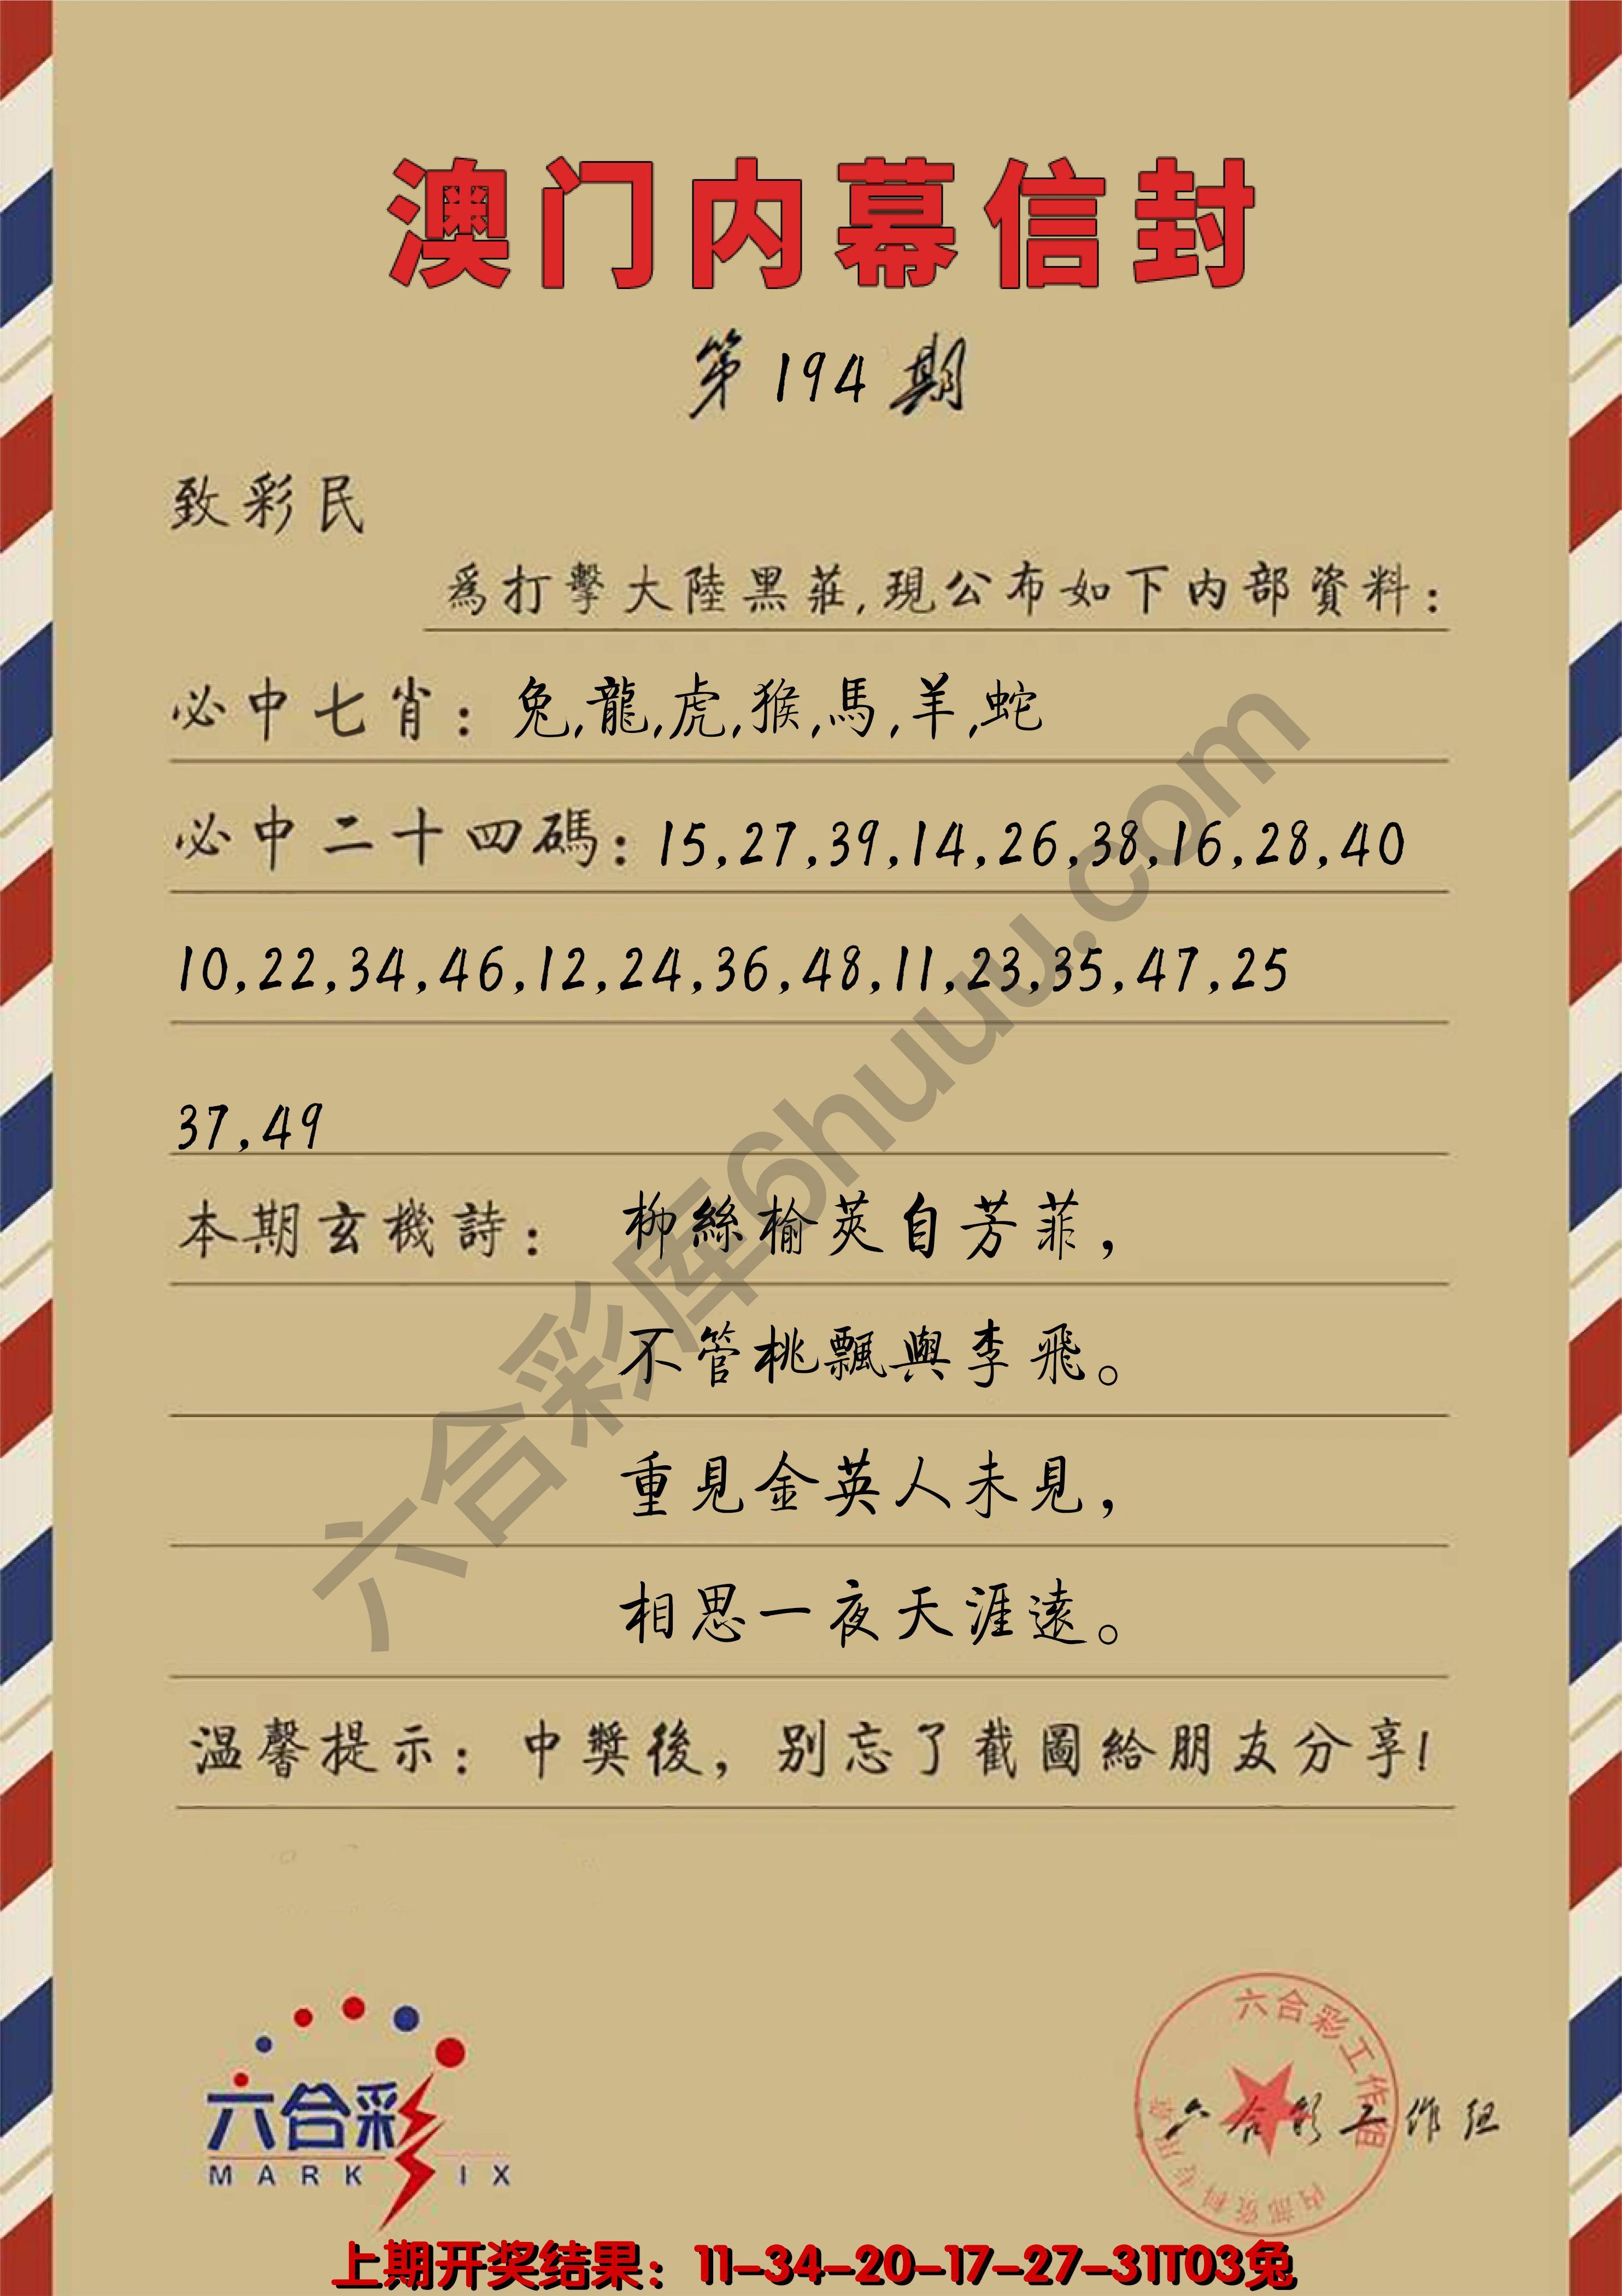 澳门内幕信封
第194期
致彩民
爲打擊大陸黑莊,現公布如下内部資料:
必中七肖: 兔,龍,虎,猴,馬,羊,蛇
必中二十四碼: 15,27,39,14,26,38,16,28,40
10,22,34,46,12,24,36,48,11,23,35,47,25
37,49
本期玄機詩: 柳絲榆莢自芳菲,
不管桃飄與李飛。
重見金英人未見,
相思一夜天涯遠。
温馨提示: 中獎後, 别忘了截圖給朋友分享!
六合彩库6huuu.com
六合彩
MARK SIX
六合彩工作组
内部资料专用章
六合彩工作组
上期开奖结果: 11-34-20-17-27-31T03兔